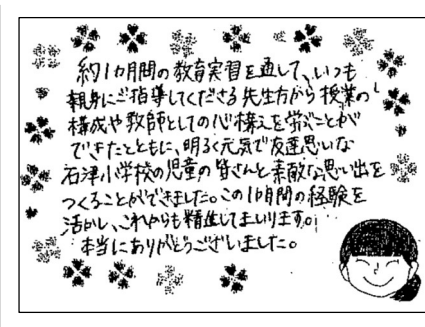 約1カ月間の教育実習を通して、いつも
親身にご指導してくださる先生方から授業の
構成や教師としての心構えを学ぶことが
できたとともに、明るく元気で友達思いな
石津小学校の児童の皆さんと素敵な思い出を
つくることができました。この1カ月間の経験を
活かし、これからも精進してまいります。
本当にありがとうございました。